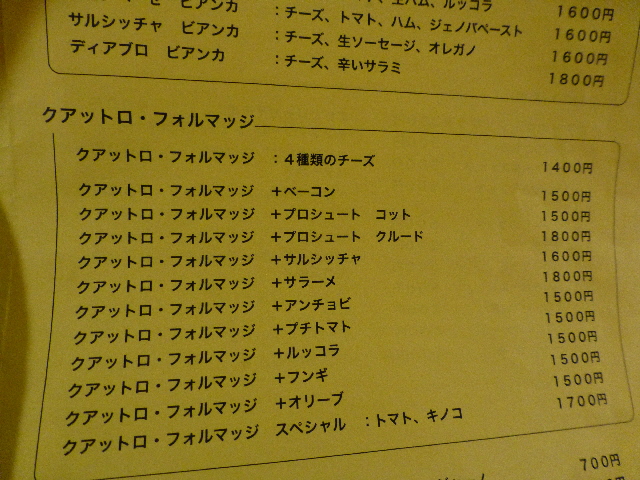 生ハム、ルッコラ 1600円
ゼ ビアンカ ：チーズ、トマト、ハム、ジェノバペースト 1600円
サルシッチャ ビアンカ ：チーズ、生ソーセージ、オレガノ 1600円
ディアブロ ビアンカ ：チーズ、辛いサラミ 1800円
クアットロ・フォルマッジ
クアットロ・フォルマッジ ：４種類のチーズ 1400円
クアットロ・フォルマッジ ＋ベーコン 1500円
クアットロ・フォルマッジ ＋プロシュート コット 1500円
クアットロ・フォルマッジ ＋プロシュート クルード 1800円
クアットロ・フォルマッジ ＋サルシッチャ 1600円
クアットロ・フォルマッジ ＋サラーメ 1800円
クアットロ・フォルマッジ ＋アンチョビ 1500円
クアットロ・フォルマッジ ＋プチトマト 1500円
クアットロ・フォルマッジ ＋ルッコラ 1500円
クアットロ・フォルマッジ ＋フンギ 1500円
クアットロ・フォルマッジ ＋オリーブ 1500円
クアットロ・フォルマッジ スペシャル ：トマト、キノコ 1700円
700円